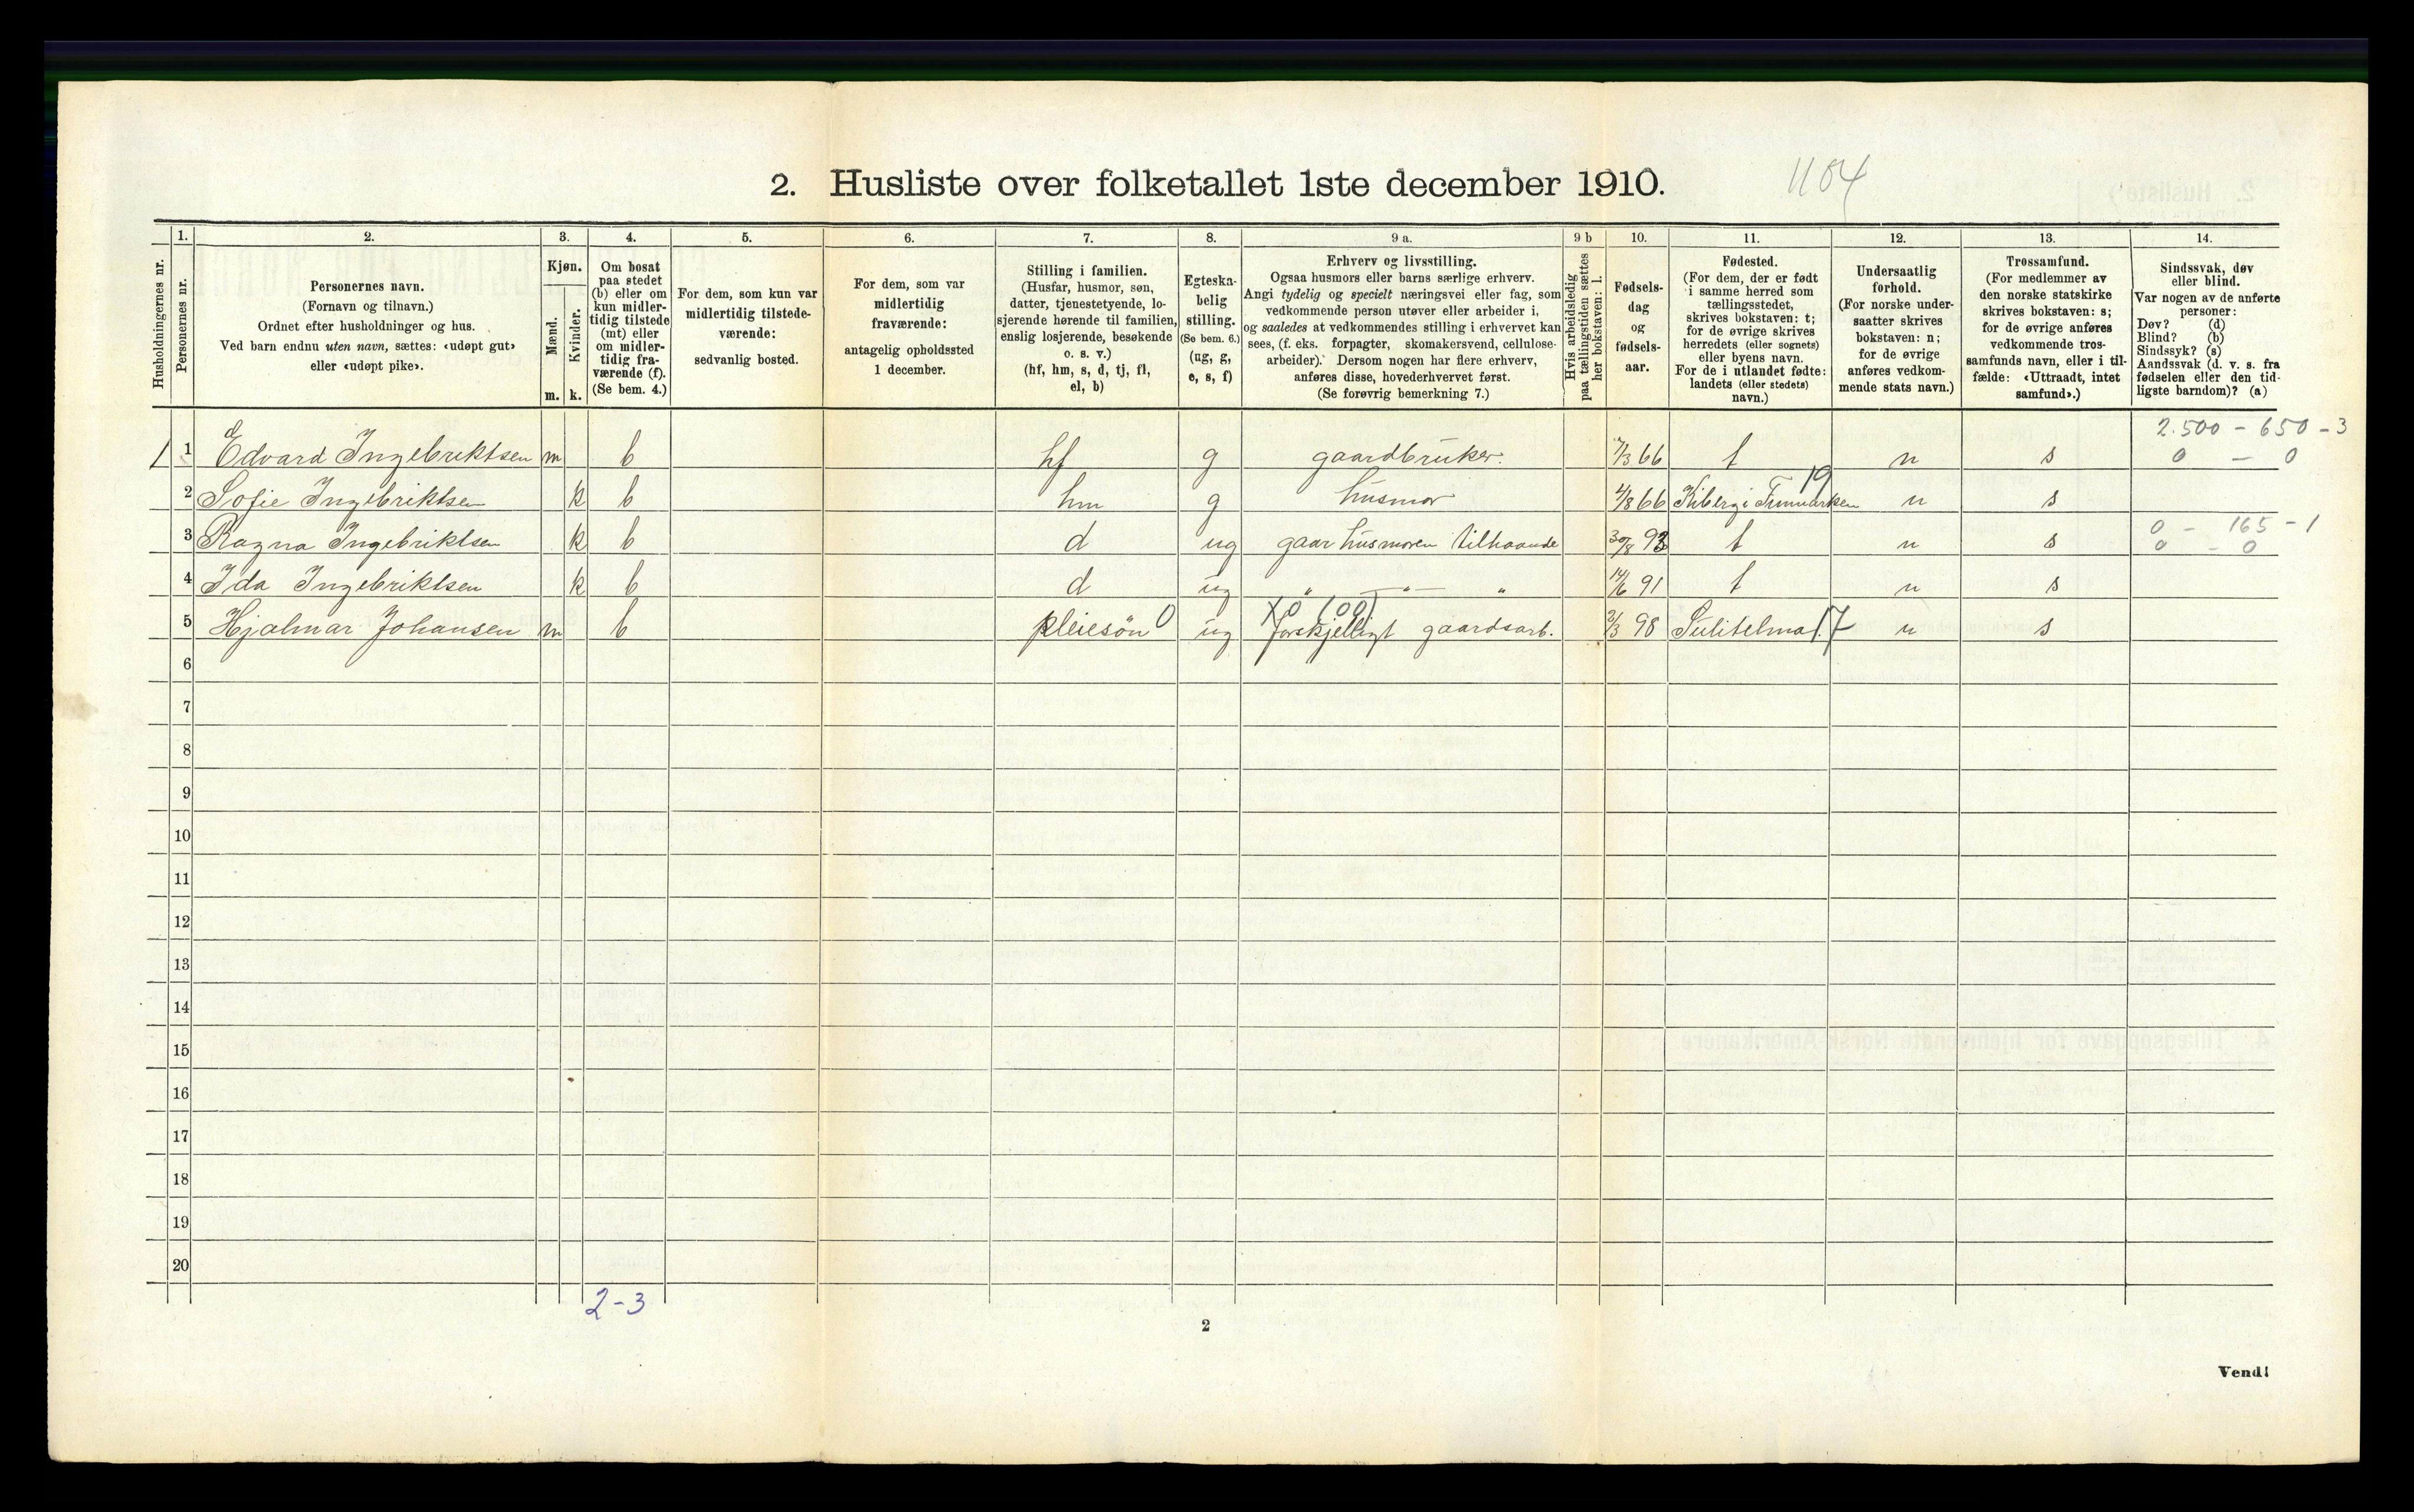 2. Husliste over folketallet 1ste december 1910.
1104
Husholdningernes nr.
1.
Personernes nr.
2.
Personernes navn.
(Fornavn og tilnavn.)
Ordnet efter husholdninger og hus.
Ved barn endnu uten navn, sættes: «udøpt gut»
eller «udøpt pike».
3.
Kjøn.
Mænd.
Kvinder.
m. k.
4.
Om bosat
paa stedet
(b) eller om
kun midler-
tidig tilstede
(mt) eller
om midler-
tidig fra-
værende (f).
(Se bem. 4.)
5.
For dem, som kun var
midlertidig tilstede-
værende:
sedvanlig bosted.
6.
For dem, som var
midlertidig
fraværende:
antagelig opholdssted
1 december.
7.
Stilling i familien.
(Husfar, husmor, søn,
datter, tjenestetyende, lo-
sjerende hørende til familien,
enslig losjerende, besøkende
o. s. v.)
(hf, hm, s, d, tj, fl,
el, b)
8.
Egteska-
belig
stilling.
(Se bem. 6.)
(ug, g,
e, s, f)
9 a.
Erhverv og livsstilling.
Ogsaa husmors eller barns særlige erhverv.
Angi tydelig og specielt næringsvei eller fag, som
vedkommende person utøver eller arbeider i,
og saaledes at vedkommendes stilling i erhvervet kan
sees, (f. eks. forpagter, skomakersvend, cellulose-
arbeider). Dersom nogen har flere erhverv,
anføres disse, hovederhvervet først.
(Se forøvrig bemerkning 7.)
9 b
Hvis arbeidsledig
paa tællingstiden sættes
her bokstaven: l.
10.
Fødsels-
dag
og
fødsels-
aar.
11.
Fødested.
(For dem, der er født
i samme herred som
tællingsstedet,
skrives bokstaven: t;
for de øvrige skrives
herredets (eller sognets)
eller byens navn.
For de i utlandet fødte:
landets (eller stedets)
navn.)
12.
Undersaatlig
forhold.
(For norske under-
saatter skrives
bokstaven: n;
for de øvrige
anføres vedkom-
mende stats navn.)
13.
Trossamfund.
(For medlemmer av
den norske statskirke
skrives bokstaven: s;
for de øvrige anføres
vedkommende tros-
samfunds navn, eller i til-
fælde: «Uttraadt, intet
samfund».)
14.
Sindssvak, døv
eller blind.
Var nogen av de anførte
personer:
Døv? (d)
Blind? (b)
Sindssyk? (s)
Aandssvak (d. v. s. fra
fødselen eller den tid-
ligste barndom)? (a)
2.500 - 650 - 3
1 1 Edvard Ingebriktsen m b hf g gaardbruker. 7/3 66 t n s 0 — 0
19
2 Sofie Ingebriktsen k b hm g husmor 4/8 66 Kiberg i Finmarken n s
0 - 165 - 1
3 Ragna Ingebriktsen k b d ug gaar husmoren tilhaande 30/8 93 t n s 0 - 0
4 Ida Ingebriktsen k b d ug " —"— " 14/6 91 t n s
X0 (00)
5 Hjalmar Johansen m b pleiesøn 0 ug forskjelligt gaardsarb. 2/3 98 Sulitelma 17 n s
6
7
8
9
10
11
12
13
14
15
16
17
18
19
20
2-3
2
Vend!